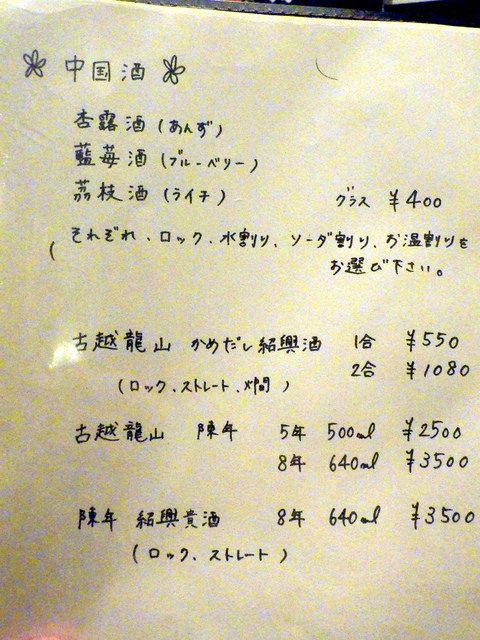 中国酒
杏露酒(あんず)
藍苺酒(ブルーベリー)
茘枝酒(ライチ) グラス ¥400
(それぞれ、ロック、水割り、ソーダ割り、お温割りを
お選び下さい。
古越龍山 かめだし紹興酒 1合 ¥550
2合 ¥1080
(ロック、ストレート、燗)
古越龍山 陳年 5年 500ml ¥2500
8年 640ml ¥3500
陳年 紹興貴酒 8年 640ml ¥3500
(ロック、ストレート)